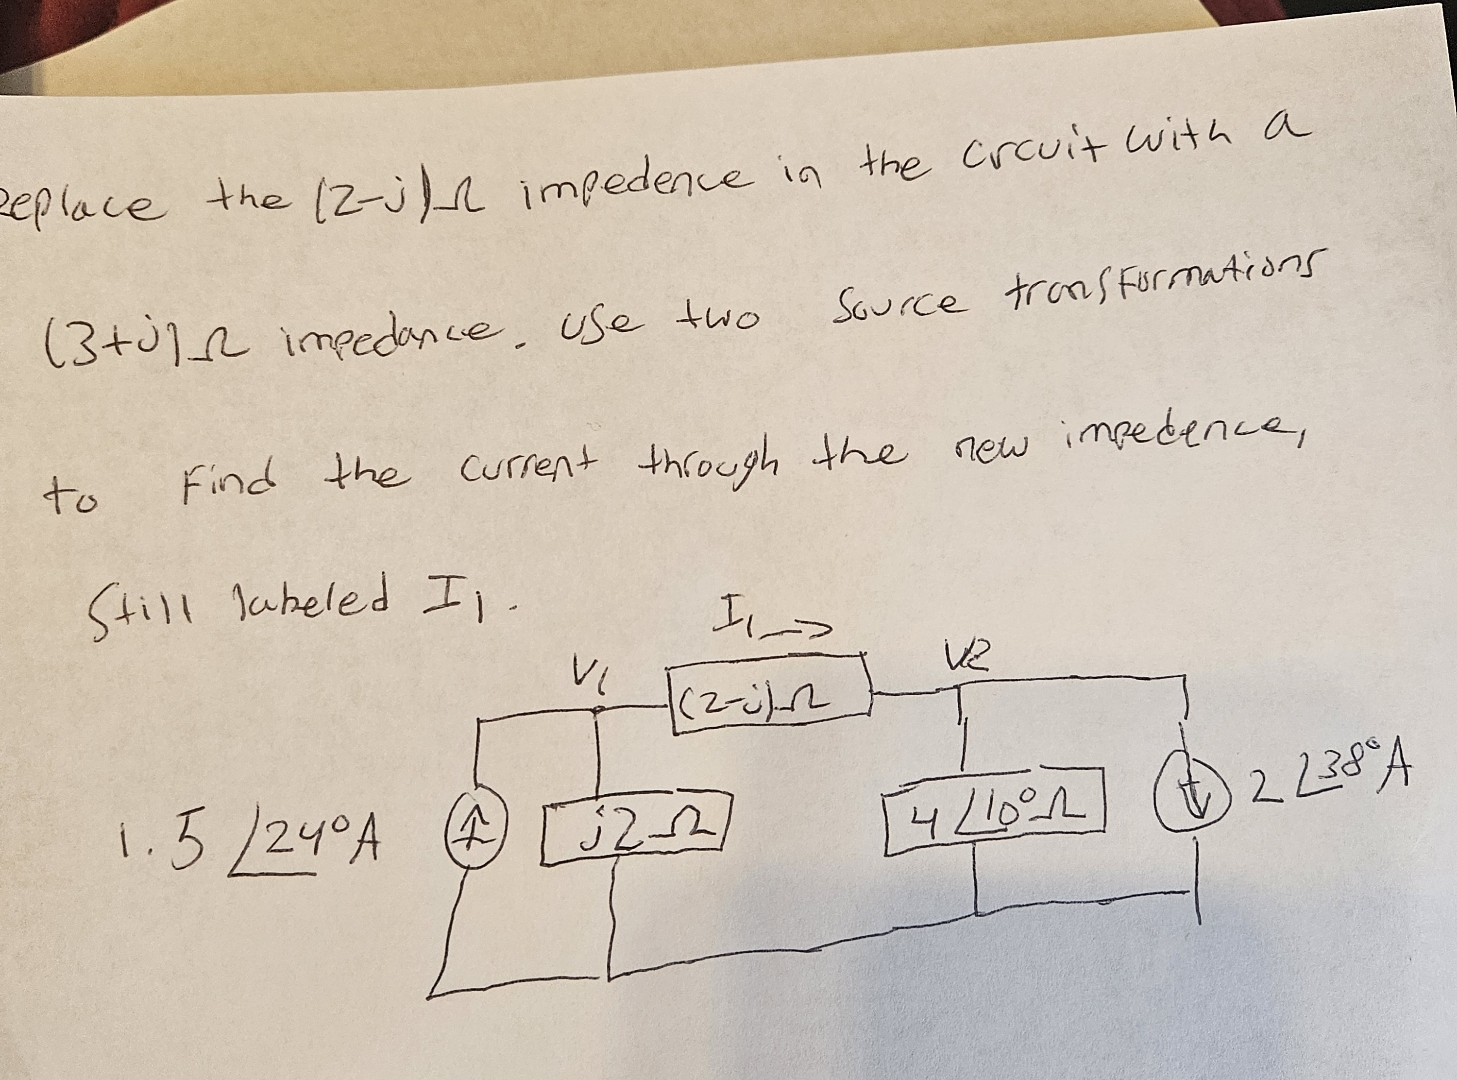 Replace the (2-j)Ω impedence in the crcuit with a
(3+j)Ω impedance. use two source transformations
to Find the current through the new impedence,
Still labeled I₁.
I₁→
V₁
(2-j)Ω
V2
1.5 ∠24°A
j2Ω
4∠10°Ω
2∠38°A